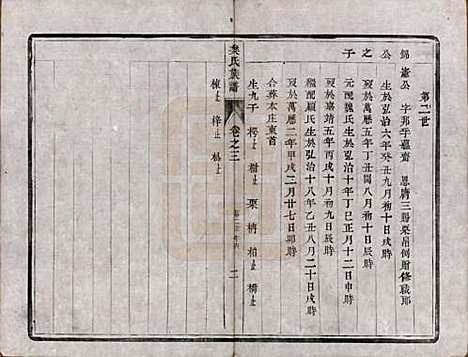 第二世
錦憲公　字邦平　號齋　恩膺三錫粟帛例贈修職郎
公　生於弘治六年癸丑九月初十日戌時
之　歿於萬曆五年丁丑閏八月初十日辰時
子　元配魏氏生於弘治十年丁巳正月十二日申時
歿於嘉靖五年丙戌十月初九日辰時
繼配顧氏生於弘治十八年乙丑八月二十日戌時
歿於萬曆二年甲戌二月廿七日卯時
合葬本庄東首
生九子　樗　柑　栗　柄　柏　橋
氏族譜
卷之三
二
梓